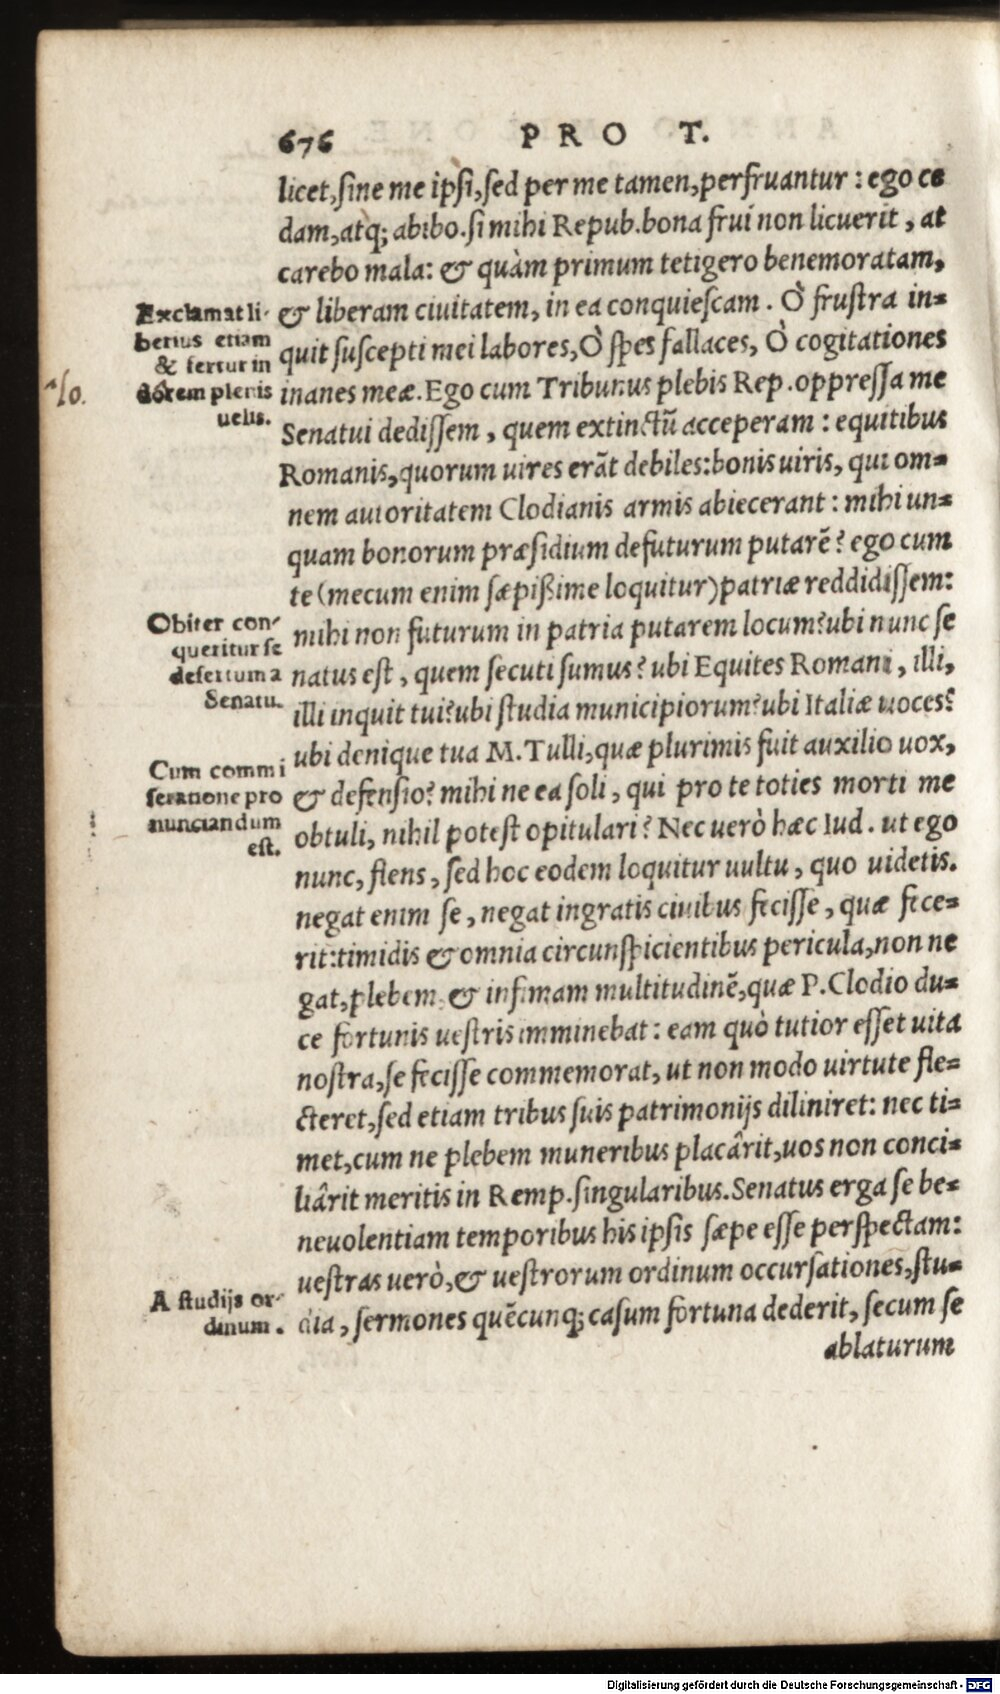 676 PRO T.
licet, sine me ipsi, sed per me tamen, perfruantur : ego ce
dam, atq; abibo. si mihi Repub. bona frui non licuerit, at
carebo mala: & quàm primum tetigero benemoratam,
& liberam ciuitatem, in ea conquiescam. Ò frustra in=
quit suscepti mei labores, Ò spes fallaces, Ò cogitationes
inanes meæ. Ego cum Tribunus plebis Rep. oppressa me
Senatui dedissem, quem extinctũ acceperam : equitibus
Romanis, quorum uires erãt debiles: bonis uiris, qui om=
nem autoritatem Clodianis armis abiecerant : mihi un=
quam bonorum præsidium defuturum putarẽ? ego cum
te (mecum enim sæpißime loquitur) patriæ reddidissem:
mihi non futurum in patria putarem locum? ubi nunc se
natus est, quem secuti sumus? ubi Equites Romani, illi,
illi inquit tui? ubi studia municipiorum? ubi Italiæ uoces?
ubi denique tua M. Tulli, quæ plurimis fuit auxilio uox,
& defensio? mihi ne ea soli, qui pro te toties morti me
obtuli, nihil potest opitulari? Nec uerò hæc Iud. ut ego
nunc, flens, sed hoc eodem loquitur uultu, quo uidetis.
negat enim se, negat ingratis ciuibus fecisse, quæ fece=
rit: timidis & omnia circunspicientibus pericula, non ne
gat, plebem & infimam multitudinẽ, quæ P. Clodio du=
ce fortunis uestris imminebat : eam quò tutior esset uita
nostra, se fecisse commemorat, ut non modo uirtute fle=
cteret, sed etiam tribus suis patrimonijs diliniret: nec ti=
met, cum ne plebem muneribus placârit, uos non conci=
liârit meritis in Remp. singularibus. Senatus erga se be=
neuolentiam temporibus his ipsis sæpe esse perspectam:
uestras uerò, & uestrorum ordinum occursationes, stu=
dia, sermones quẽcunq; casum fortuna dederit, secum se
ablaturum
Exclamat li-
berius etiam
& fertur in
dolorem plenis
uelis.
Obiter con-
queritur se
desertum a
Senatu.
Cum commi
seratione pro
nunciandum
est.
A studijs or-
dinum.
Digitalisierung gefördert durch die Deutsche Forschungsgemeinschaft - DFG